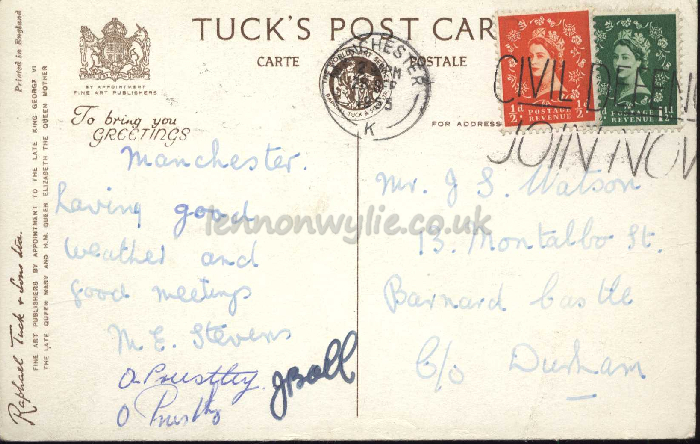 TUCK'S POST CAR
CARTE POSTALE
BY APPOINTMENT
FINE ART PUBLISHERS
Printed in England
To bring you
GREETINGS
FOR ADDRESS
CHESTER
K
CIVIL DEFEN
JOIN NOW
½D ½D
POSTAGE
REVENUE
1½D
POSTAGE
REVENUE
Manchester.
Having good
weather and
good meetings
M. E. Stevens
O Priestley
O Priestly
J Ball
Mr. J S. Watson
13. Montalbo St.
Barnard Castle
C/o Durham
lennonwylie.co.uk
Raphael Tuck & Sons Ltd.
FINE ART PUBLISHERS BY APPOINTMENT TO THE LATE KING GEORGE VI
THE LATE QUEEN MARY AND H.M. QUEEN ELIZABETH THE QUEEN MOTHER